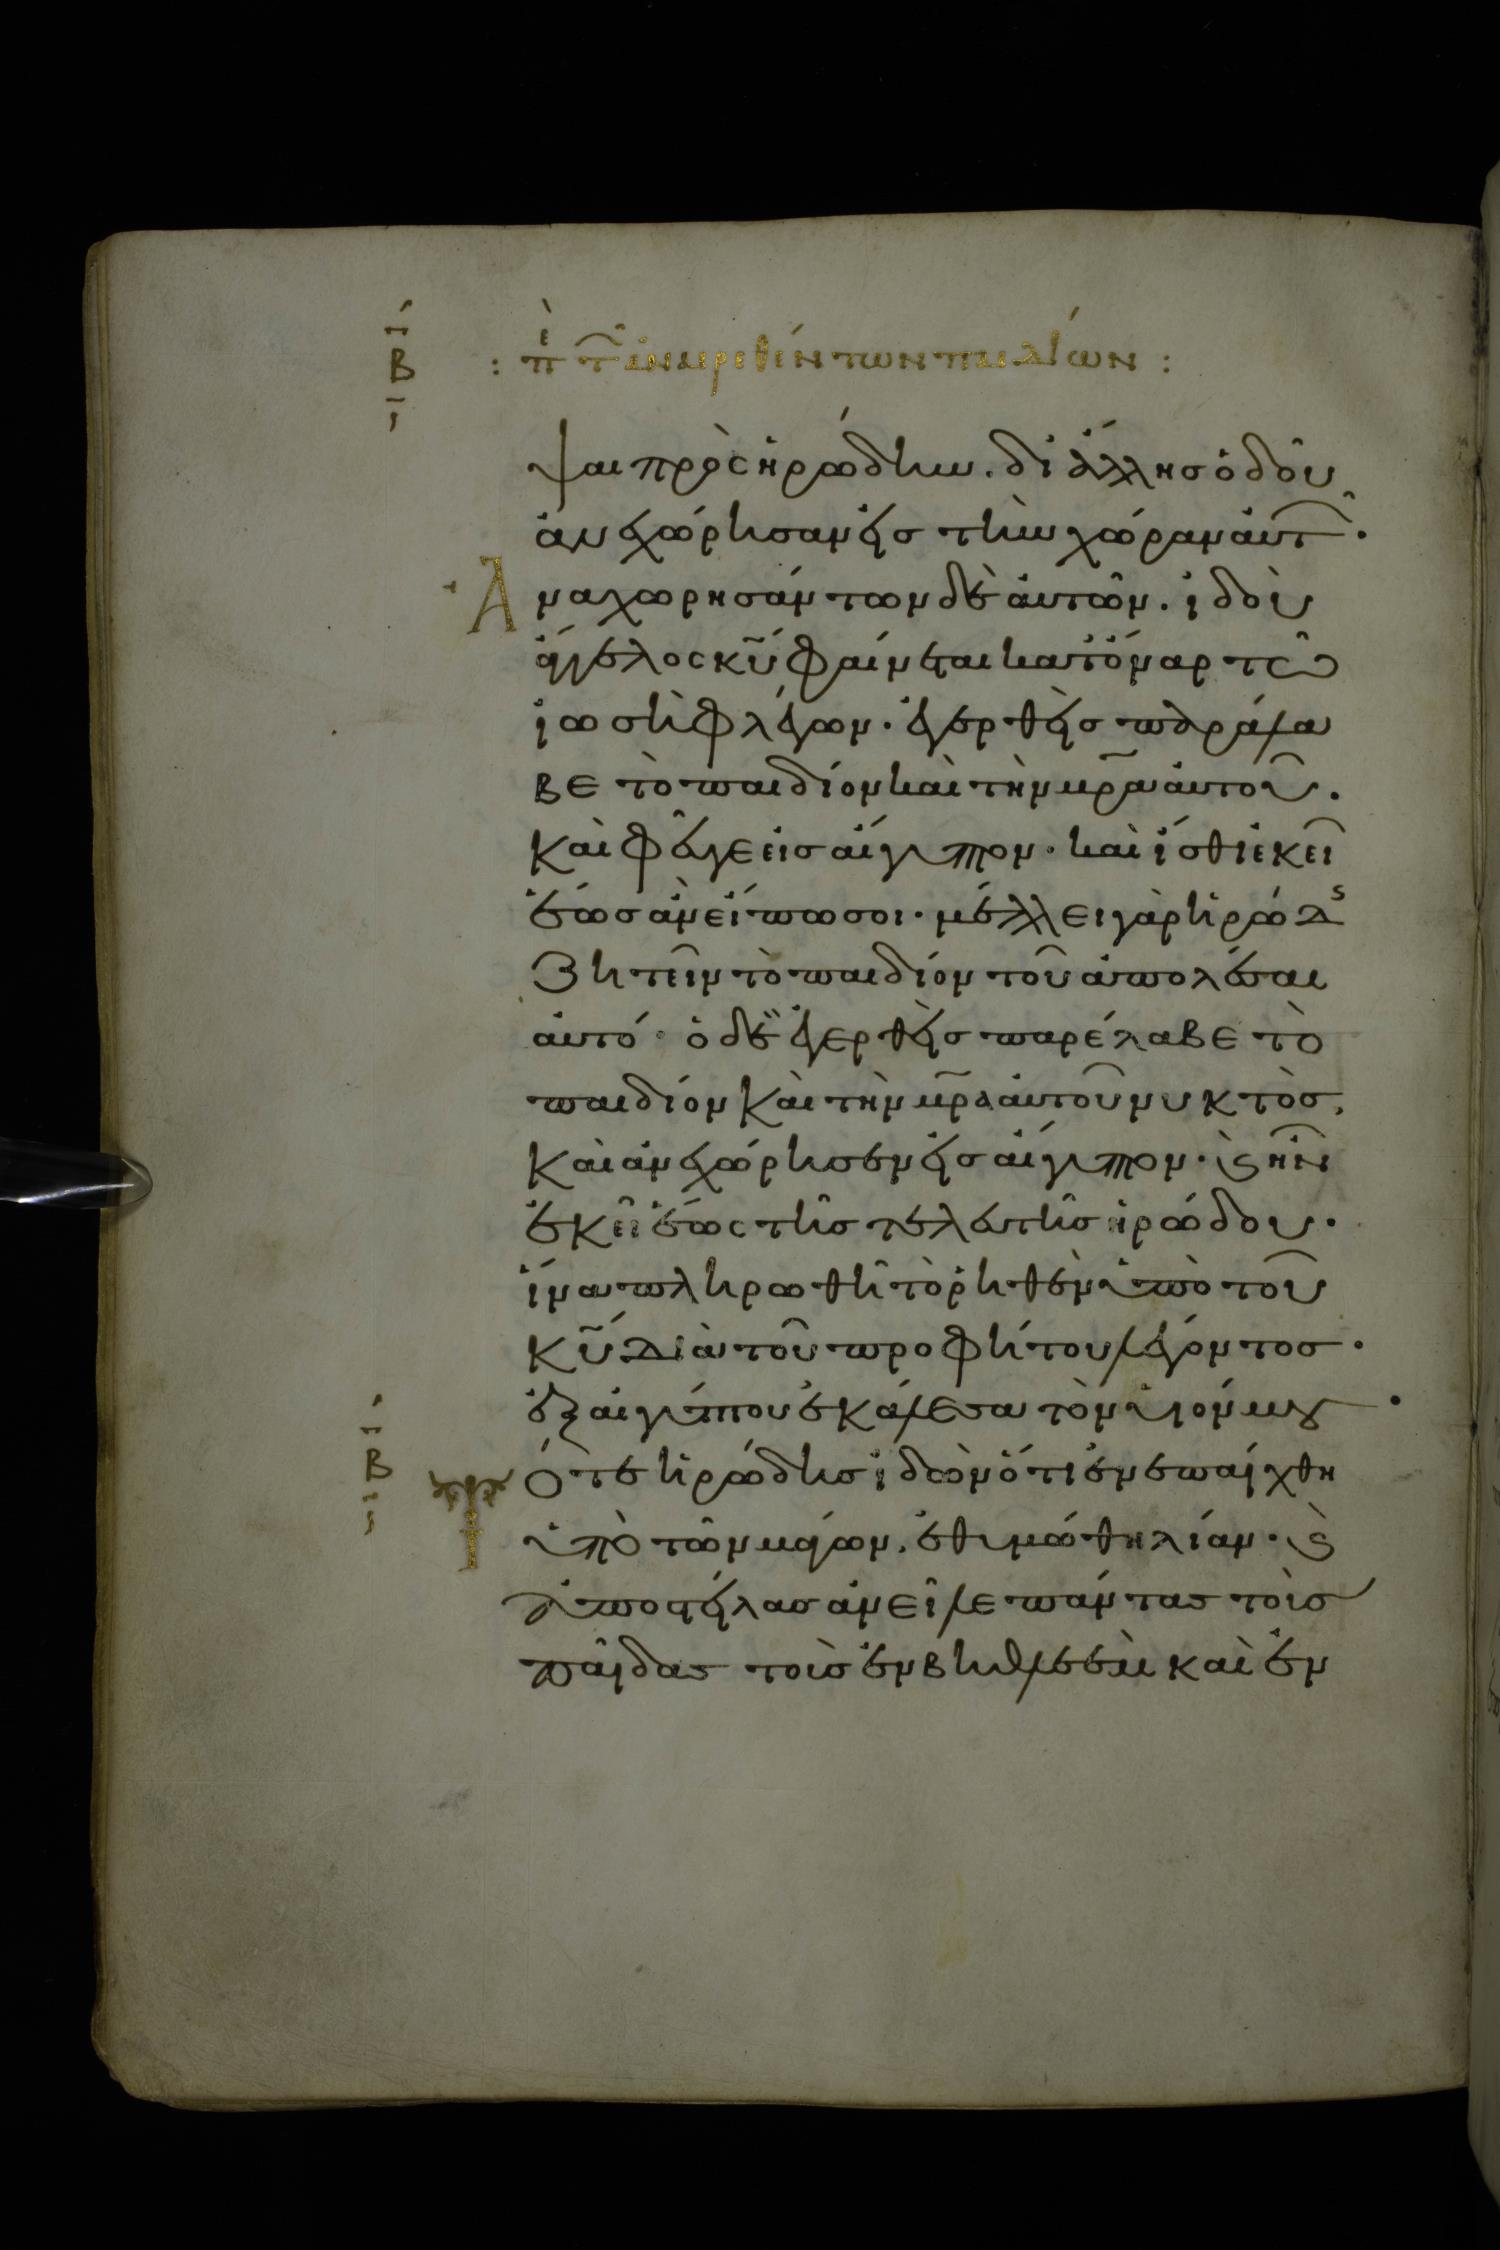 Β
: πε τ ἀναιρεθέντων παιδίων :
ψαι πρὸς ἡρώδην. δι ἄλλησ ὁδοῦ
ἀνεχώρησαν εἰσ τὴν χώραν αὐτ.
Ἀναχωρησάντων δὲ αὐτῶν. ἰδοὺ
ἄγγελος κυ φαίνεται κατ ὄναρ τῶ
ἰωσὴφ λέγων. ἐγερθεὶσ παράλα
βε τὸ παιδίον καὶ τὴν μρα αὐτοῦ.
καὶ φεῦγε εἰσ αἴγυπτον. καὶ ἴσθι ἐκεῖ
ἕωσ ἂν εἴπω σοι. μέλλει γὰρ ἡρώδς
ζητεῖν τὸ παιδίον τοῦ ἀπολέσαι
αὐτό. ὁ δὲ ἐγερθεὶσ παρέλαβε τὸ
παιδίον καὶ τὴν μρα αὐτοῦ νυκτὸσ,
καὶ ἀνεχώρησεν εἰσ αἴγυπτον. ϗ ἦν
ἐκεῖ ἕως τῆσ τελευτῆσ ἡρώδου.
ἵνα πληρωθῆ τὸ ῥηθὲν ὑπὸ τοῦ
κυ διὰ τοῦ προφήτου λέγοντοσ.
ἐξ αἰγύπτου ἐκάλεσα τὸν υἱόν μου.
Β
Τότε ἡρώδησ ἰδὼν ὅτι ἐνεπαίχθη
ὑπὸ τῶν μάγων, ἐθυμώθη λίαν. ϗ
ἀποστείλασ ἀνεῖλε πάντασ τοὺσ
παῖδασ τοὺσ ἐν βηθλεὲμ καὶ ἐν